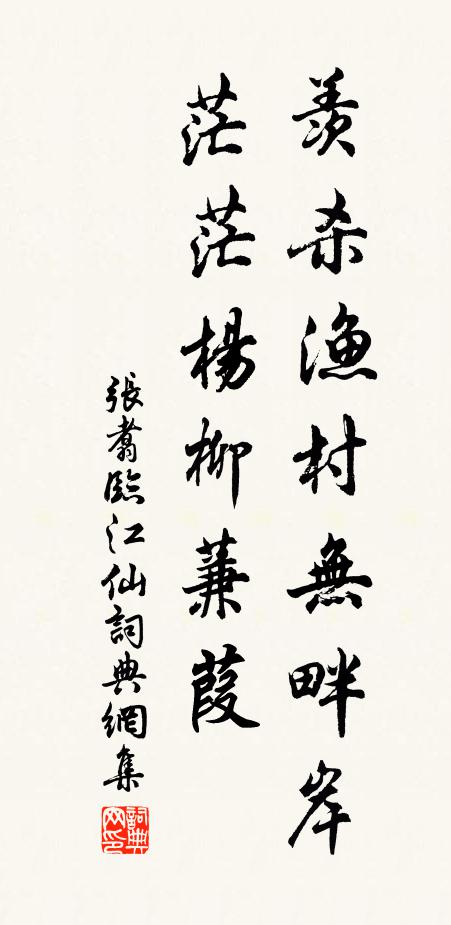 羨殺漁村無畔岸
茫茫楊柳蒹葭
張翥臨江仙詞典網集
詞典網印